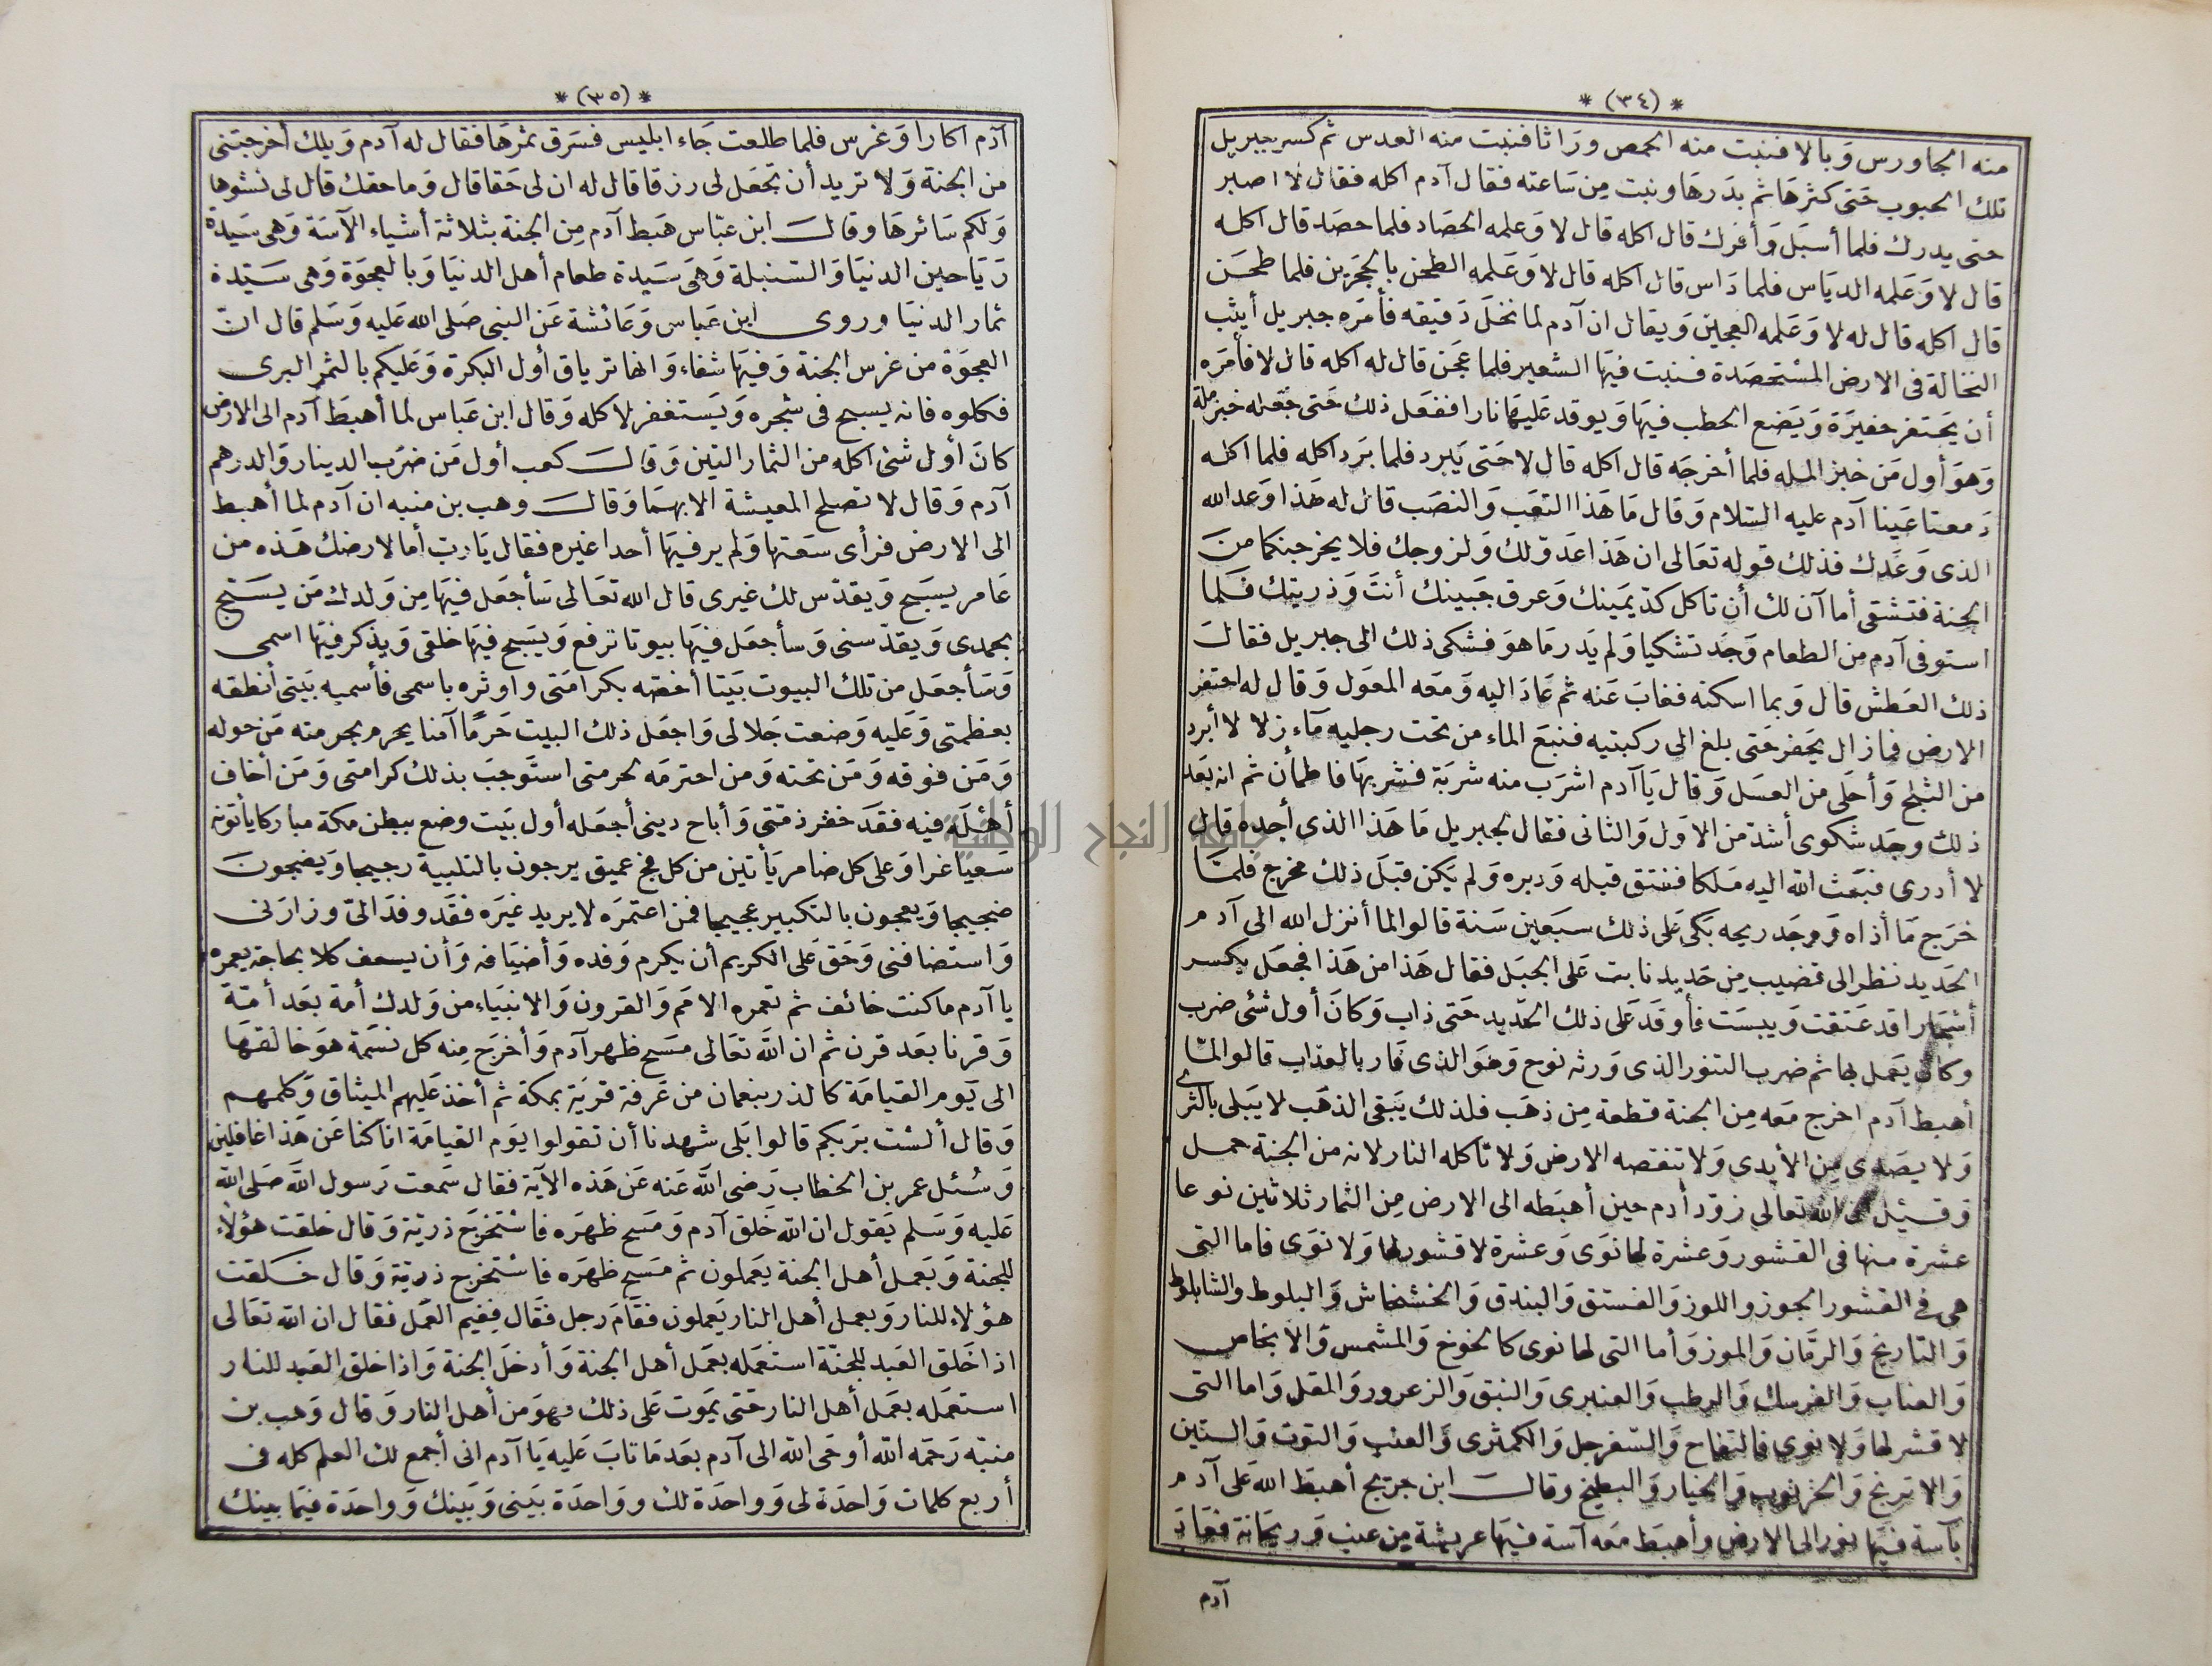 * (٣٤) *
منه الجاورس وَبالا فنبت منه الحمص ورَاثا فنبت منه العدس ثم كسر جبريل
تلك الحبوب حَتى كثرهَا ثم بذرهَا ونبت مِن سَاعته فقال آدم آكله فقال لا اصبر
حتى يدرك فلما أسبَل وَأفرك قال آكله قال لا وَعلمه الحصَاد فلما حصَد قال آكله
قال لا وَعَلمه الديَاس فلما دَاس قال آكله قال لا وَعَلمه الطحن بالحجَرين فلما طحَن
قال آكله قال له لا وَعَلمه العجين وَيقال ان آدم لما نخلَ دَقيقه فأمَره جبريل أن يبث
النخالة فى الارض المسْتحصَدة فنبت فيهَا الشعير فلما عجَن قال له آكله قال لا فأمَره
أن يحَتفر حفيرَة وَيَضع الحطب فيهَا وَيوقد عَليهَا نارا ففعَل ذلك حَتى جعَله خبز ملة
وَهوَ أول مَن خبز المله فلما أخرجَه قال آكله قال لا حَتى يَبرد فلما بَرد اكله فلما اكله
دَمعتا عَينا آدم عليه السَّلام وَقال مَا هَذا التعَب وَالنصَب قال له هَذا وَعد الله
الذى وَعَدك فذلك قوله تعَالى ان هَذا عَدوّ لك وَلزوجك فلا يخرجنكما منَ
الجنة فتشقى أما آن لك أن تاكل كدّ يمَينك وَعرق جَبينك أنتَ وَذريتك فَلما
استوفى آدم مِن الطعام وَجَد تشكيا وَلم يَدر مَا هوَ فشكى ذلك الى جبريل فقالَ
ذلك العَطش قال وَبما اسكنه فغابَ عَنه ثم عَادَ اليه وَمَعه المعوَل وَقال له احتفر
الارض فما زال يحَفر حَتى بلغ الى ركبتيه فنبَع الماء من تحَت رجليه مَاء زلالا أبرد
من الثلج وَأحلَى من العسَل وَقال يَا آدم اشرَب منه شربَة فشربهَا فاطمأن ثم انه بَعد
ذلك وجَد شكوى أشدّ من الاوَل وَالثانى فقال لجبريل مَا هَذا الذى أجده قال
لا أدرى فبَعَث الله اليه مَلكا ففتق قبله وَدبره وَلم يَكن قبَل ذلك مخرج فلمَّا
خرَج مَا أذاه وَوجَد ريحه بَكى عَلى ذلك سَبعَين سَنة قالوا لما أنزل الله الى آدم
الحَديد نظر الى قضيب مِن حَديد نابت عَلى الجبَل فقال هَذا من هَذا فجعَل يكسر
أشجَارا قد عَتقت وَيبسَت فأوقدَ عَلى ذلك الحَديد حَتى ذاب وَكانَ أول شئ ضرب
وكان يعَمل بها ثم ضرب التنور الذى وَرثه نوح وَهوَ الذى فار بالعذاب قالوا لمَّا
أهبط آدم اخرج مَعه مِن الجنة قطعة مِن ذهَب فلذلك يَبقى الذهَب لا يَبلى بالثرى
وَلا يصَدى مِن الأيدى وَلا تنقصه الارض وَلا تاكله النار لانه من الجنة حمل
وَقيل ان الله تعَالى زوّد آدم حين أهبَطه الى الارض مِن الثمار ثلاثين نوعا
عشرة منها فى القشور وَعشرة لها نوَى وَعشرة لا قشور لها وَلا نوَى فاما التى
هى فى القشور الجوز واللوز وَالفستق وَالبندق وَالخشخاش وَالبلوط والشابلوط
وَالنارنج وَالرمَّان وَالموز وَأما التى لها نوى كالخوخ وَالمشمس وَالاجَاص
وَالعناب وَالفرسك وَالرطب وَالعنبرى وَالنبق وَالزعرور وَالمقل وَاما التى
لا قشر لها وَلا نوى فالتفاح وَالسَّفرجل وَالكمثرى وَالعنب وَالتوت وَالتين
وَالاترنج وَالخرنوب وَالخيار وَالبطيخ وقال ابن جريج أهبطَ الله عَلى آدم
بآسة فيهَا نور الى الارض وأهبَط مَعه آسة فيهَا عريشة مِن عنب وَريحَانة فعَادَ
آدم
* (٣٥) *
آدم اكارا وَغرس فلما طلعت جَاء ابليس فسَرق ثمرهَا فقال له آدم وَيلك أخرجتنى
من الجنة وَلا تريد أن تجَعَل لى رزقا قال له ان لى حَقا قال وَما حقك قال لى نشوها
وَلكم سَائرهَا وقال ابن عبّاس هَبط آدم مِن الجنة بثلاثة أشياء الآسَة وَهى سَيّدة
رَيَاحين الدنيَا وَالسّنبلة وَهىَ سَيدة طعام أهل الدنيَا وَبالعجوَة وَهى سَيّدة
ثمار الدنيَا وروى ابن عَباس وَعَائشة عَن النبى صَلى الله عَليه وَسَلم قال انّ
العجوَة من غرس الجنة وَفيهَا شفاء وَانها ترياق أول البكرة وَعَليكم بالتمر البرى
فكلوه فانه يسبح فى شجره وَيَستغفر لاكله وَقال ابن عَباس لما أهبطَ آدم الى الارض
كانَ أول شئ اكله من الثمار التين وَقال كعب أول مَن ضرَب الدينار وَالدرهم
آدم وَقال لا تصلح المعيشة الا بهمَا وَقال وهب بن منبه ان آدم لما أهبط
الى الارض فرأى سَعَتها وَلم ير فيهَا أحدا غيره فقال يَارب أما لارضك هَذه من
عَامر يسَبح وَيقدّس لك غيرى قال الله تعَالى سَأجعَل فيهَا مِن وَلدك مَن يسَبّح
بحمدى وَيقدّسنى وَسأجعَل فيهَا بيوتا ترفع وَيسَبح فيهَا خلقى وَيذكر فيهَا اسمى
وَسَأجعَل من تلك البيوت بَيتا أخصّه بكرامَتى واوثره باسمى فأسميه بَيتى أنطقه
بعظمتى وَعَليه وَضعت جَلالى وَاجعَل ذلك البيت حَرمًا آمنا يحرم بحرمته مَن حوله
وَمَن فوقه وَمَن تحَته وَمن احترمَه لحرمتى استَوجبَ بذلك كرامتى وَمَن أخاف
أهلَه فيه فقَد خفر ذمّتى وَأباح دينى أجعَله أول بَيت وضع ببطن مكة مباركا يأتونه
سَعيَا غبرا وَعلى كل ضامر يَأتين من كل فج عميق يرجون بالتلبية رجيجا وَيضجون
ضجيجا وَيعجون بالتكبير عجيجا فمن اعتمرَه لا يريد غيَره فقَد وفدَ الىّ وزارنى
وَاستضافنى وَحَق عَلى الكريم أن يكرم وَفده وَأضيَافه وَأن يسعف كلا بحاجته يعمره
يا آدم ما كنت خائف ثم تعمره الامَم وَالقرون وَالانبيَاء من وَلدك أمة بعَد أمّة
وَقرنا بعَد قرن ثم ان الله تعَالى مسَح ظهر آدم وَأخرَج مِنه كل نسَمَة هوَ خالقهَا
الى يَوم القيامَة كالذر بنعمان من عَرفة قريَة بمكة ثم أخذ عَليهم الميثاق وَكلمهم
وَقال ألسْت برَبكم قالوا بَلى شهدنا أن تقولوا يوَم القيامَة انا كنا عَن هَذا غافلين
وَسُئل عمر بن الخطاب رَضى الله عَنه عَن هَذه الآية فقال سَمعت رَسول الله صَلى الله
عَليه وَسَلم يقول ان الله خَلق آدم وَمَسَح ظهرَه فاسْتخرَج ذريّة وَقال خلقت هؤلاء
للجنة وَبعَمل أهل الجنة يعَملون ثم مَسَح ظهرَه فاسْتخرج ذريّة وَقال خلقت
هؤلاء للنار وَبعمل أهل النار يَعملون فقامَ رَجل فقال ففيم العَمل فقال ان الله تعَالى
اذا خَلق العَبد للجنّة استعمَله بعَمَل أهل الجنة وَأدخلَ الجنة وَاذا خلق العَبد للنار
استعمَله بعَمَل أهل النار حَتى يمَوت عَلى ذلك فهوَ من أهل النار وَقال وَهب بن
منبّه رَحمَه الله أوحَى الله الى آدم بعَد مَا تابَ عَليه يَا آدم انى أجمع لك العلم كله فى
أربع كلمات وَاحدَة لى وَوَاحدَة لك ووَاحدَة بَينى وَبَينك وَواحدَة فيمَا بينك
جامعة النجاح الوطنية